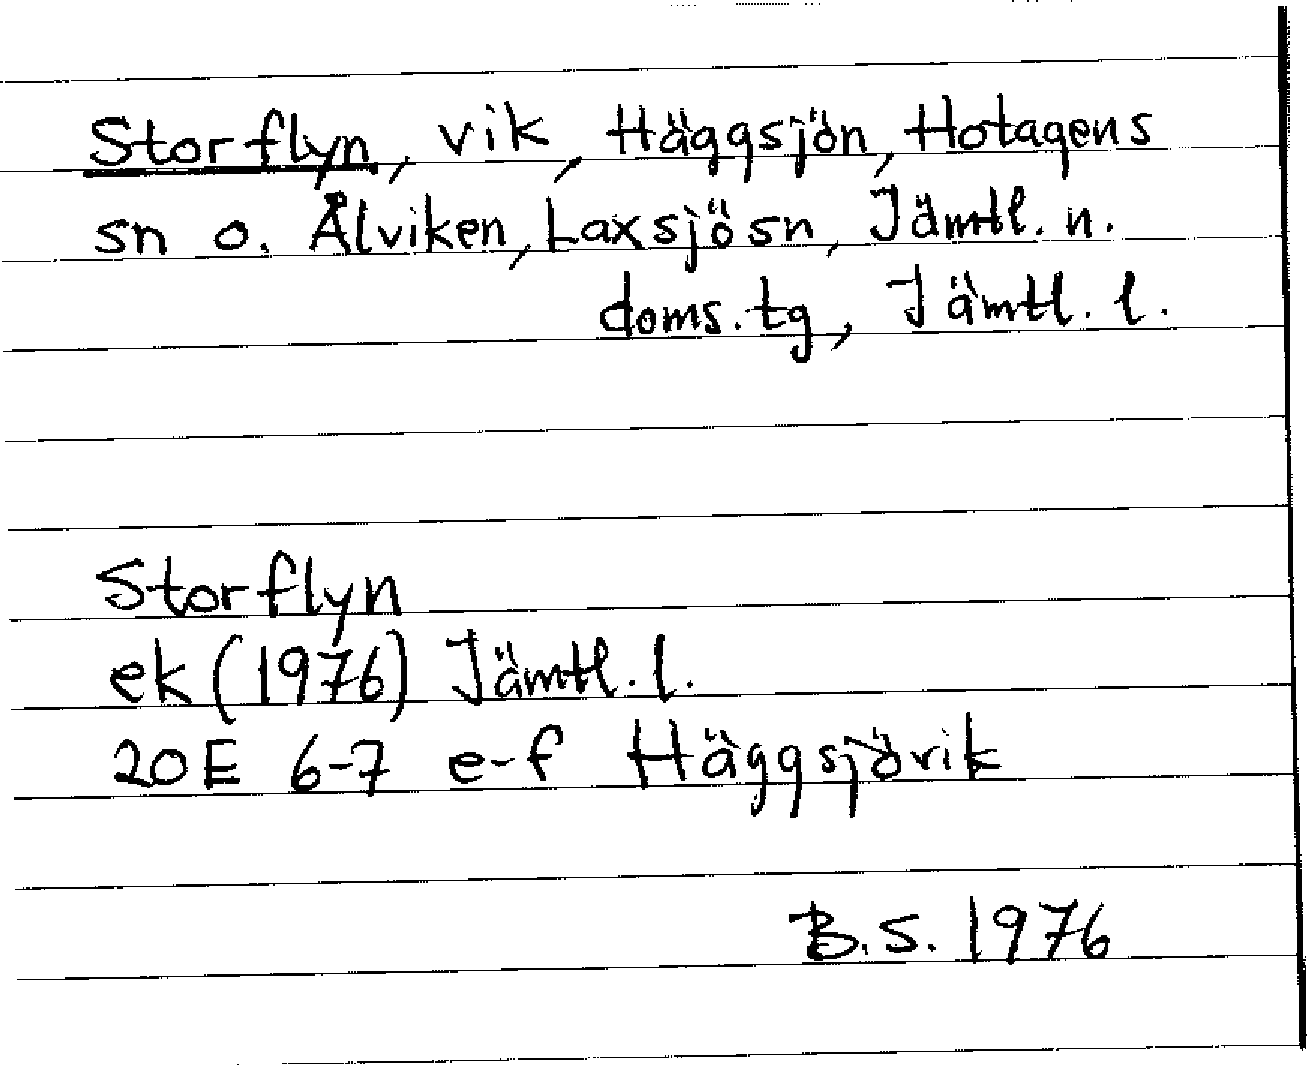 Storflyn, vik, Häggsjön, Hotagens
sn o. Ålviken, Laxsjö sn, Jämtl. n.
doms. tg, Jämtl. l.
Storflyn
ek (1976) Jämtl. l.
20E 6-7 e-f Häggsjövik
B.S. 1976